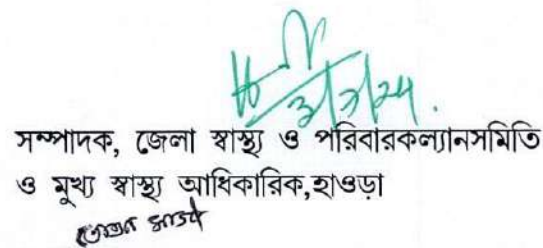 সম্পাদক, জেলা স্বাস্থ্য ও পরিবারকল্যানসমিতি
ও মুখ্য স্বাস্থ্য আধিকারিক,হাওড়া